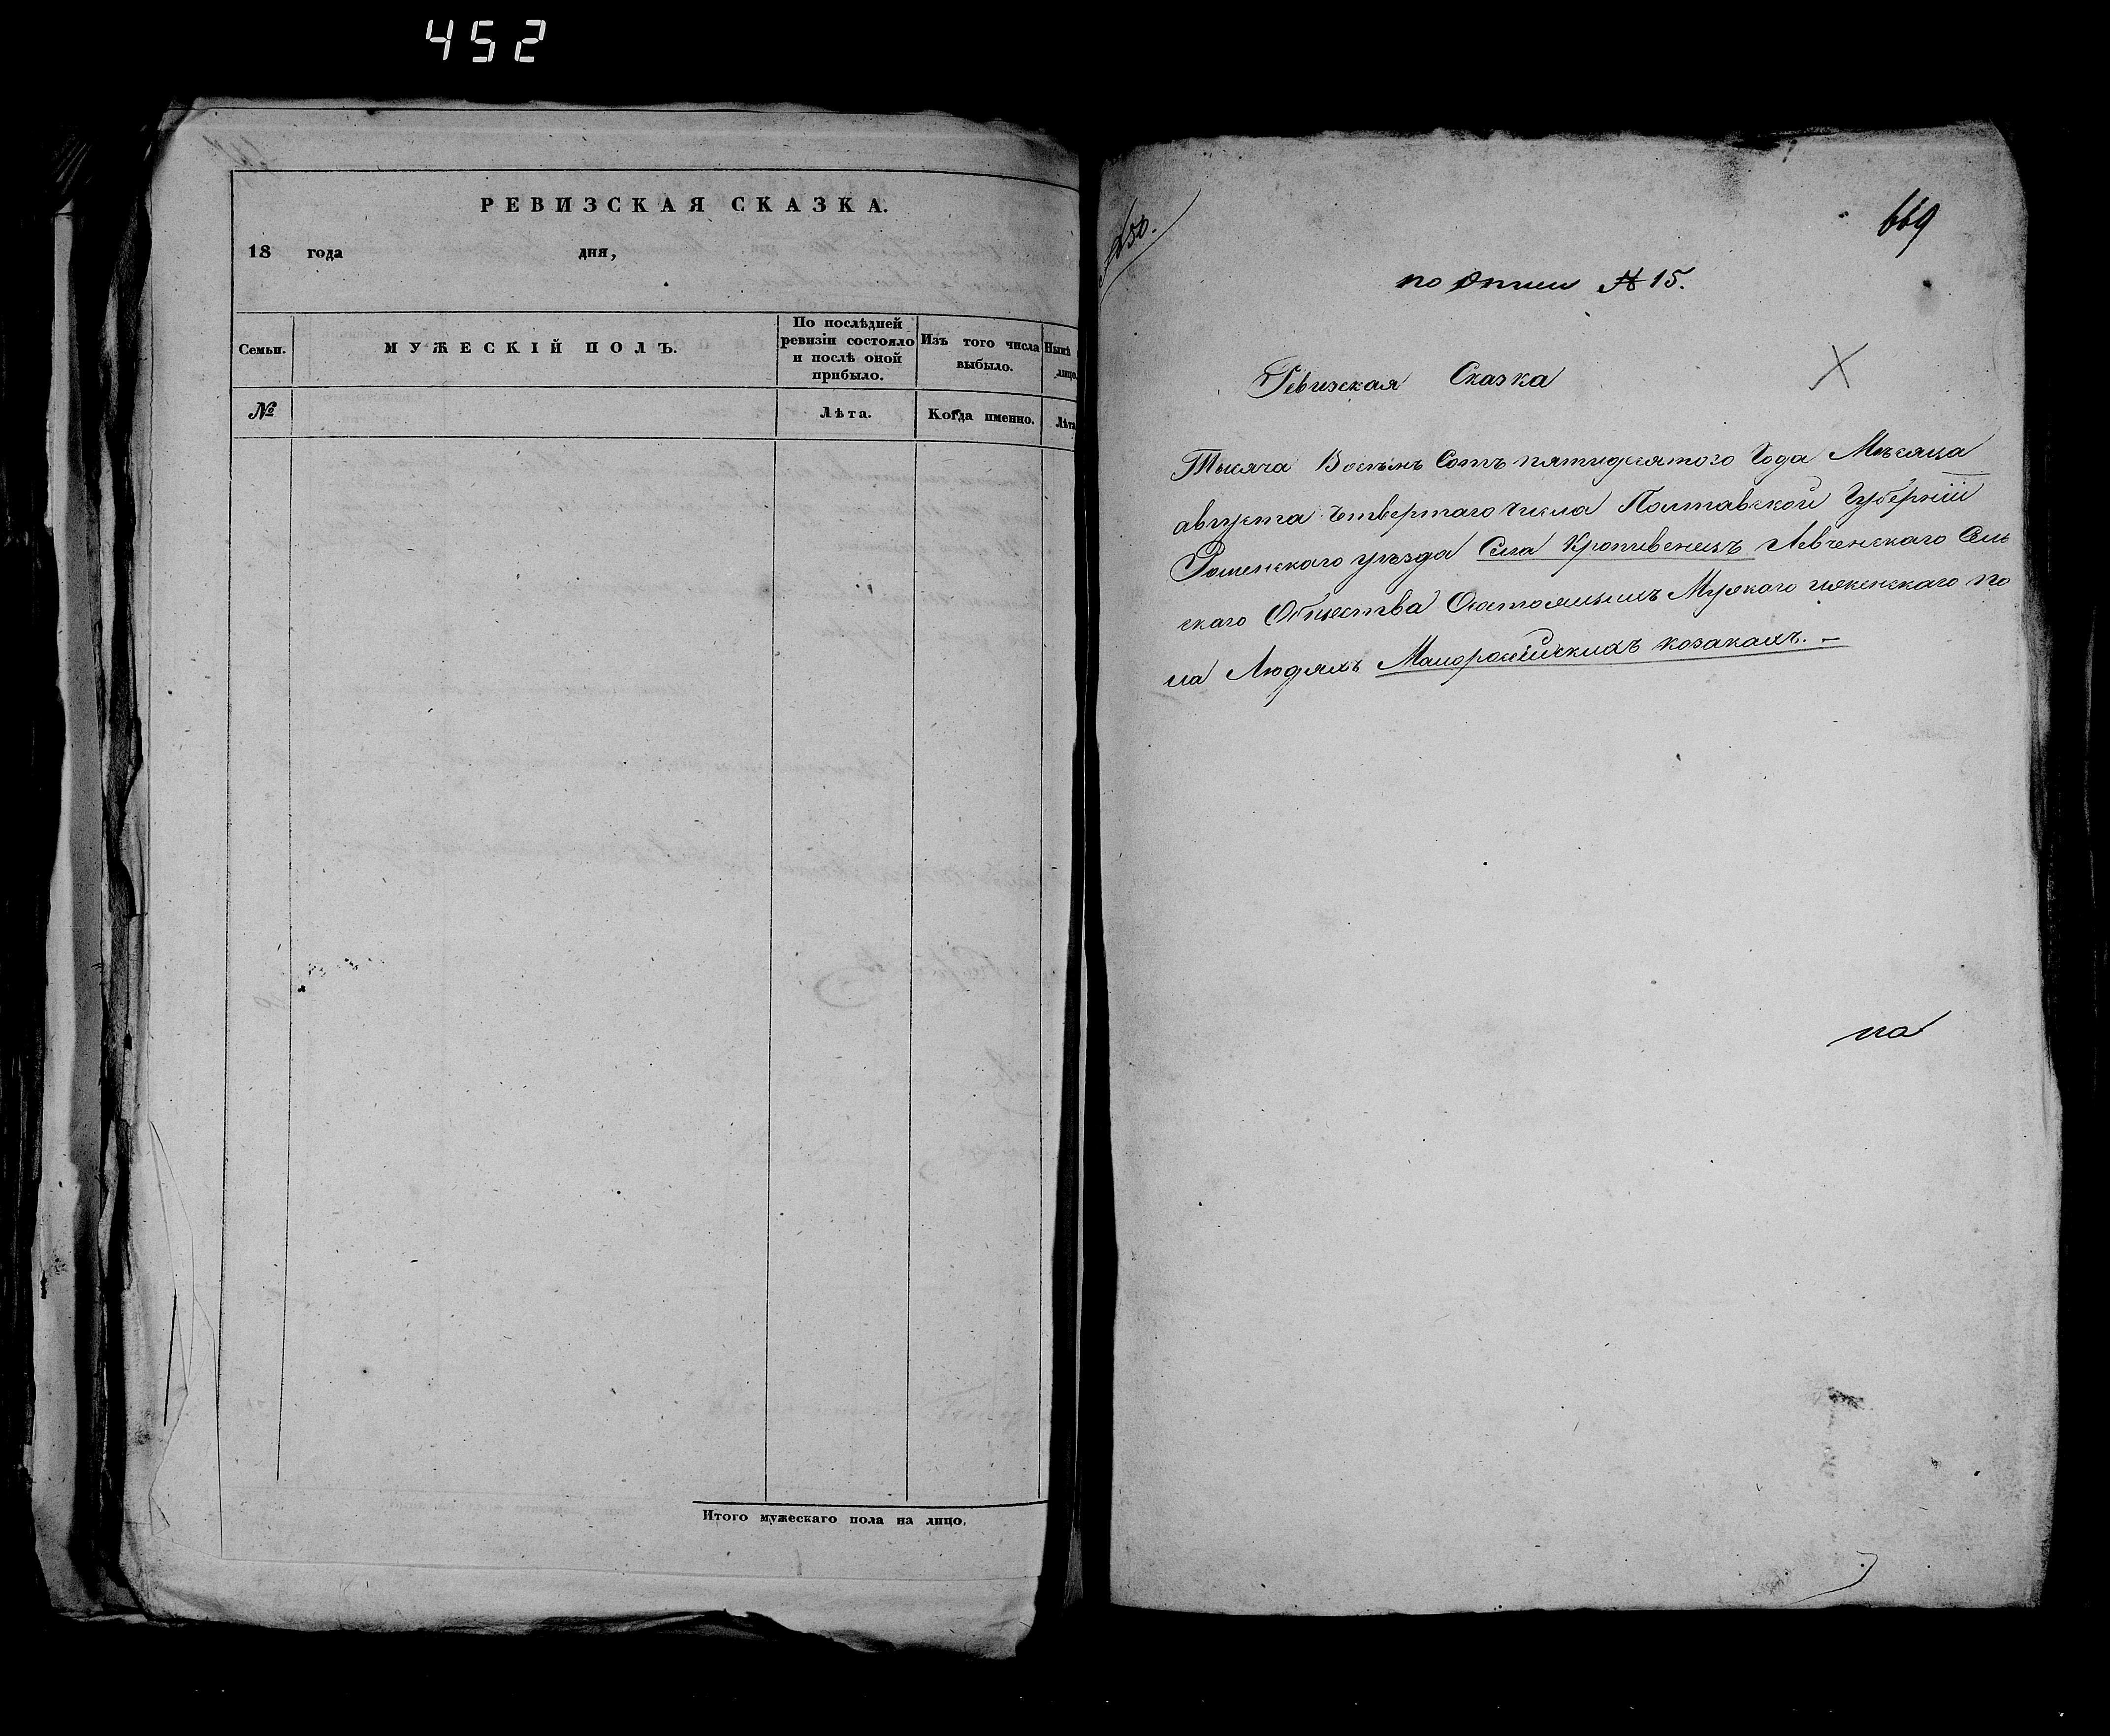 452
РЕВИЗСКАЯ СКАЗКА.
18 года дня,
Семьи.
МУЖЕСКІЙ ПОЛЪ.
По послѣдней
ревизіи состояло
и послѣ оной
прибыло.
Изъ того числа
выбыло.
Нынѣ
лицо
№
Лѣта.
Когда именно.
Лѣта
Итого мужескаго пола на лицо.
669
по Описи № 15.
Ревизская Сказка
Тысяча Восѣмъ Сотъ пятидесятого Года Мѣсяца
августа четвертаго числа Полтавской Губерніи
Роменскаго уѣзда Села Кропивенецъ Левченскаго Сель
скаго Общества Состоящихъ Мужкаго иженскаго по
ла Людяхъ Малоросійскихъ козакахъ. —
на